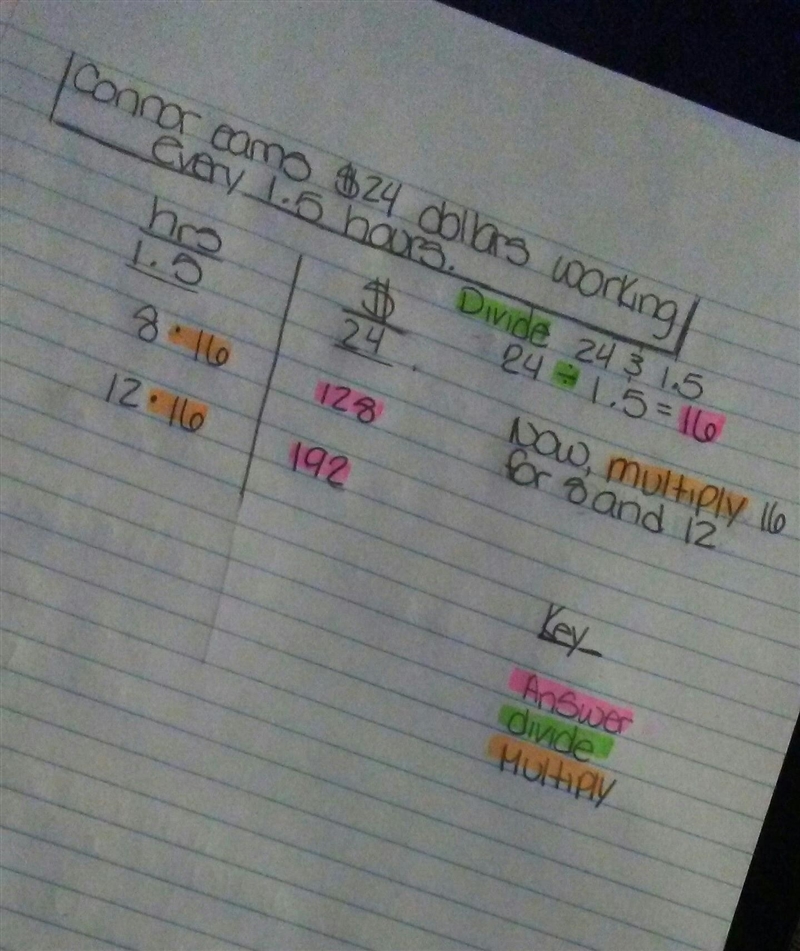 Connor earns $24 dollars working
every 1.5 hours.
hrs
1.5
8 · 16
12 · 16
$
24
128
192
Divide 24 & 1.5
24 ÷ 1.5 = 16
Now, multiply 16
for 8 and 12
Key
Answer
divide
Multiply